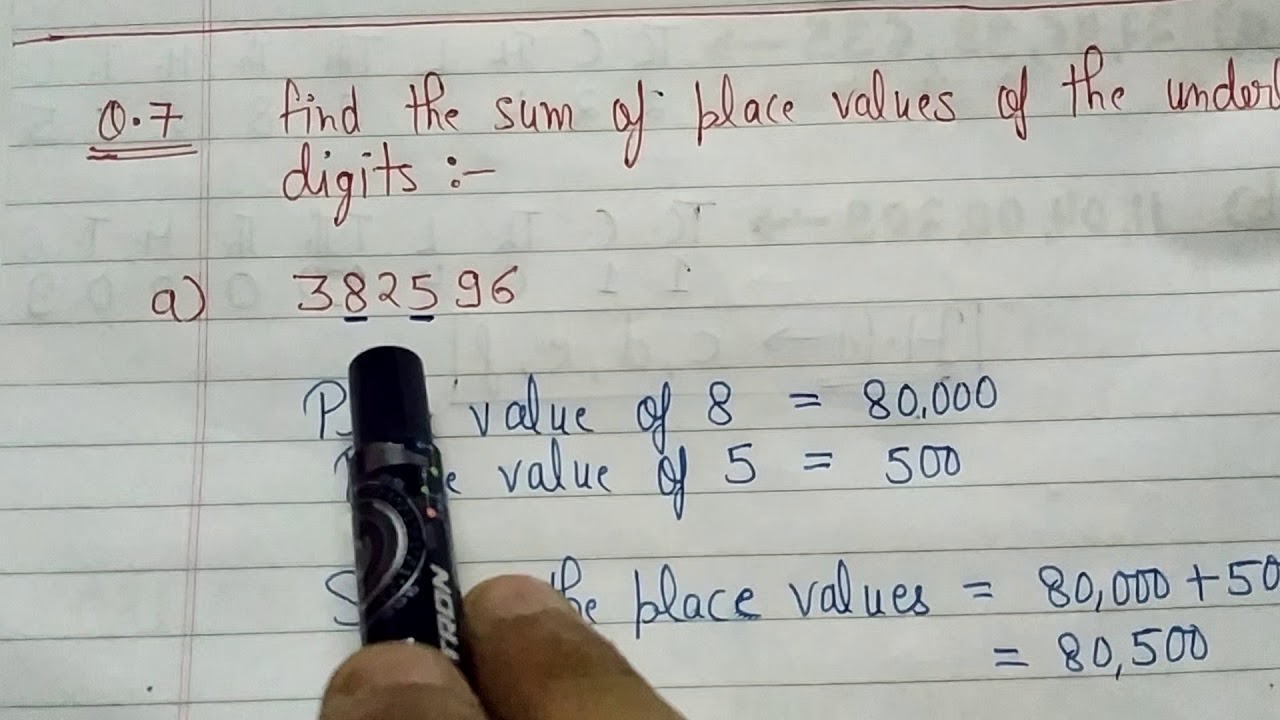 Q.7 find the sum of place values of the underl
digits :-
a) 382596
value of 8 = 80,000
value of 5 = 500
the place values = 80,000 + 50
= 80,500
TRON